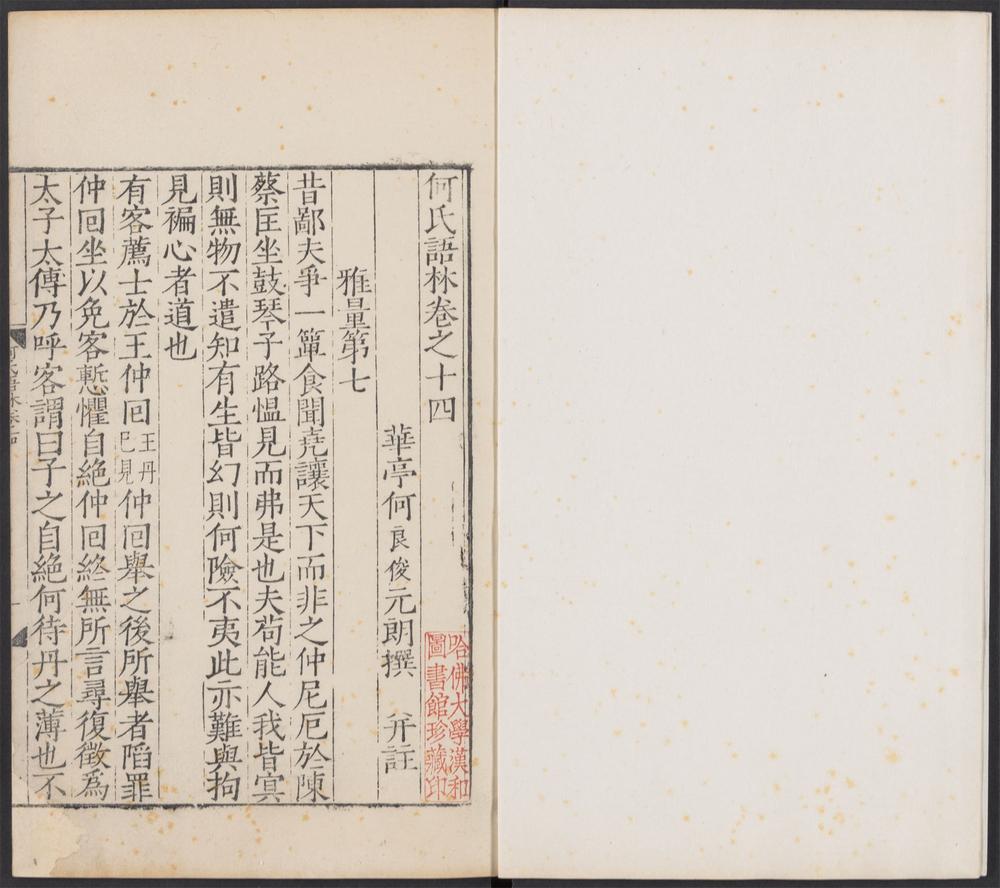 何氏語林卷之十四
華亭何良俊元朗撰 并註
雅量第七
昔鄙夫爭一簞食聞堯讓天下而非之仲尼厄於陳
蔡匡坐鼓琴子路慍見而弗是也夫茍能人我皆冥
則無物不遣知有生皆幻則何險不夷此亦難與拘
見褊心者道也
有客薦士於王仲回王丹已見仲回舉之後所舉者陷罪
仲回坐以免客慙懼自絕仲回終無所言尋復徵爲
太子太傅乃呼客謂曰子之自絕何待丹之薄也不
哈佛大學漢和
圖書館珍藏印